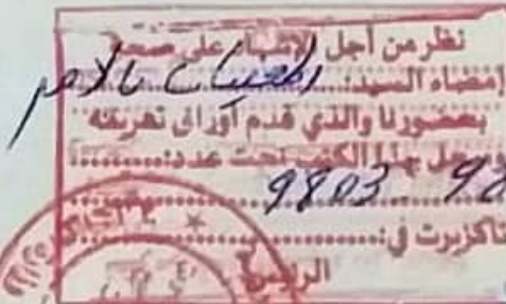 نظر من أجل الإشهاد على صحة
إمضاء السيد:
بمحضورنا والذي قدم أوراق تعريفه
وسجل بهذا الكتب تحت عدد:
9803 98
تاكزيرت في:
الرئيس